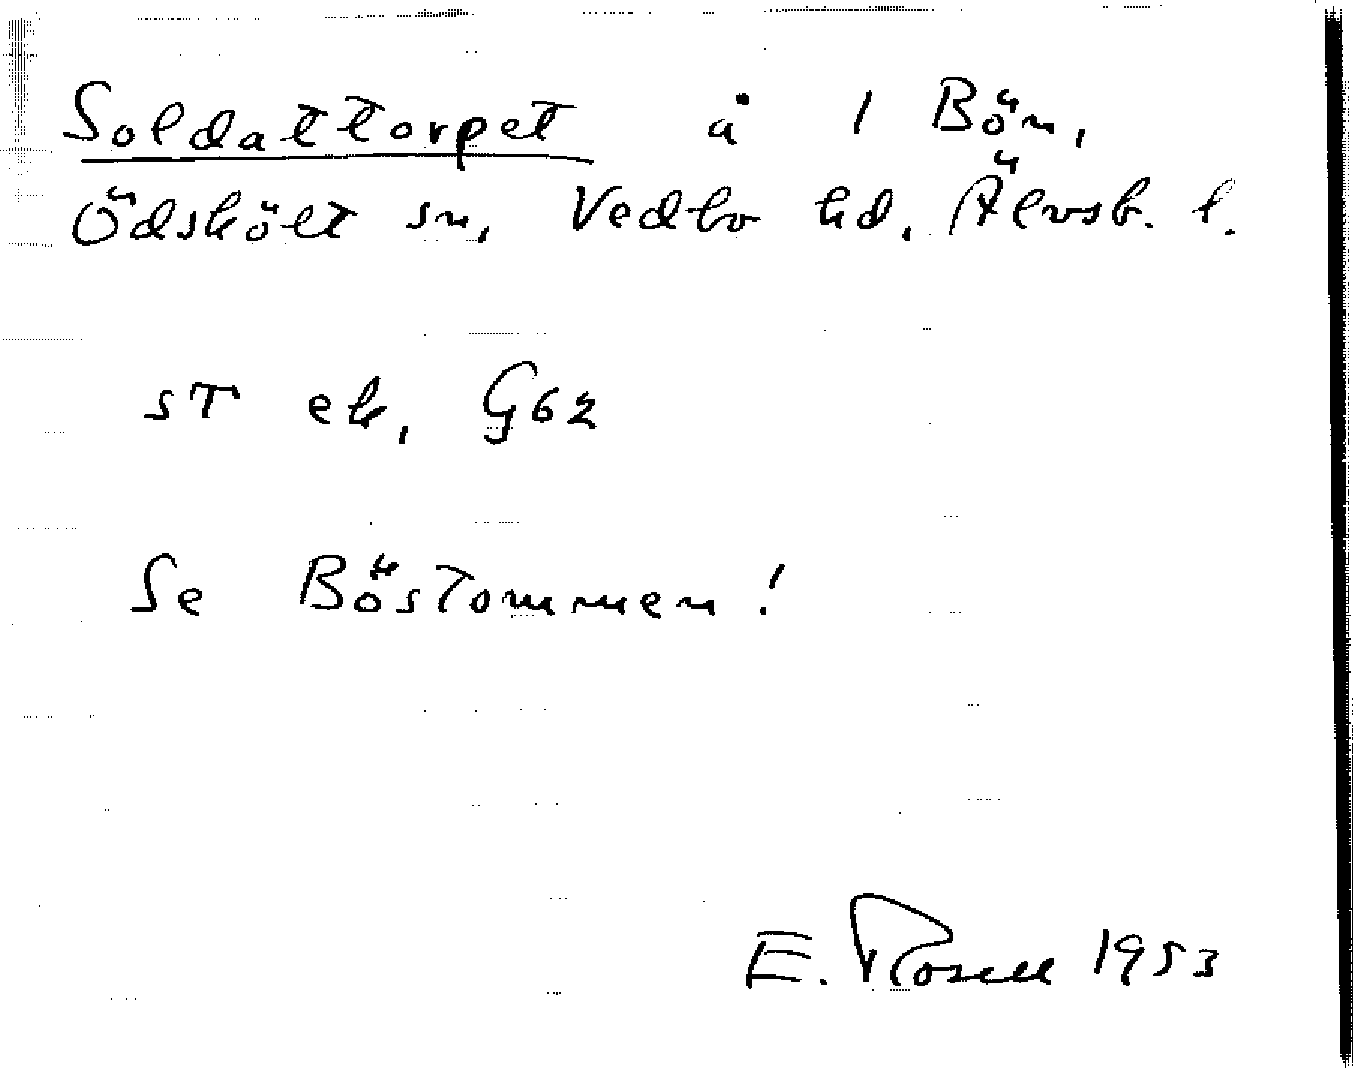 Soldattorpet å 1 Bön,
Ödskölt sn, Vedbo hd. Älvsb. l.
st ek, G62
Se Böstommen!
E. Rosell 1953